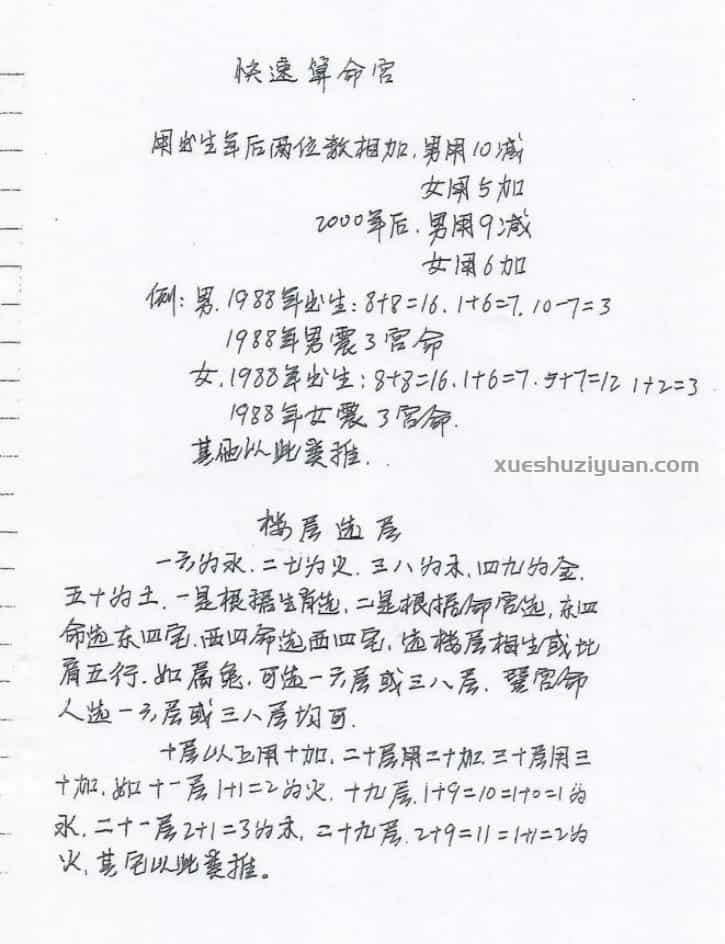 快速算命宫
用出生年后两位数相加,男用10减
女用5加
2000年后,男用9减
女用6加
例:男,1988年出生:8+8=16,1+6=7,10-7=3
1988年男震3宫命
女,1988年出生:8+8=16,1+6=7,5+7=12 1+2=3
1988年女震3宫命.
其他以此类推.
xueshuziyuan.com
楼层选层
一六为水,二七为火,三八为木,四九为金,
五十为土,一是根据生肖选,二是根据命宫选,东四
命选东四宅,西四命选西四宅,选楼层相生或比
肩五行,如属兔,可选一六层或三八层,震宫命
人选一六层或三八层均可.
十层以上用十加,二十层用二十加,三十层用三
十加,如十一层1+1=2为火,十九层,1+9=10=1+0=1为
水,二十一层2+1=3为木,二十九层,2+9=11=1+1=2为
火,其它以此类推。